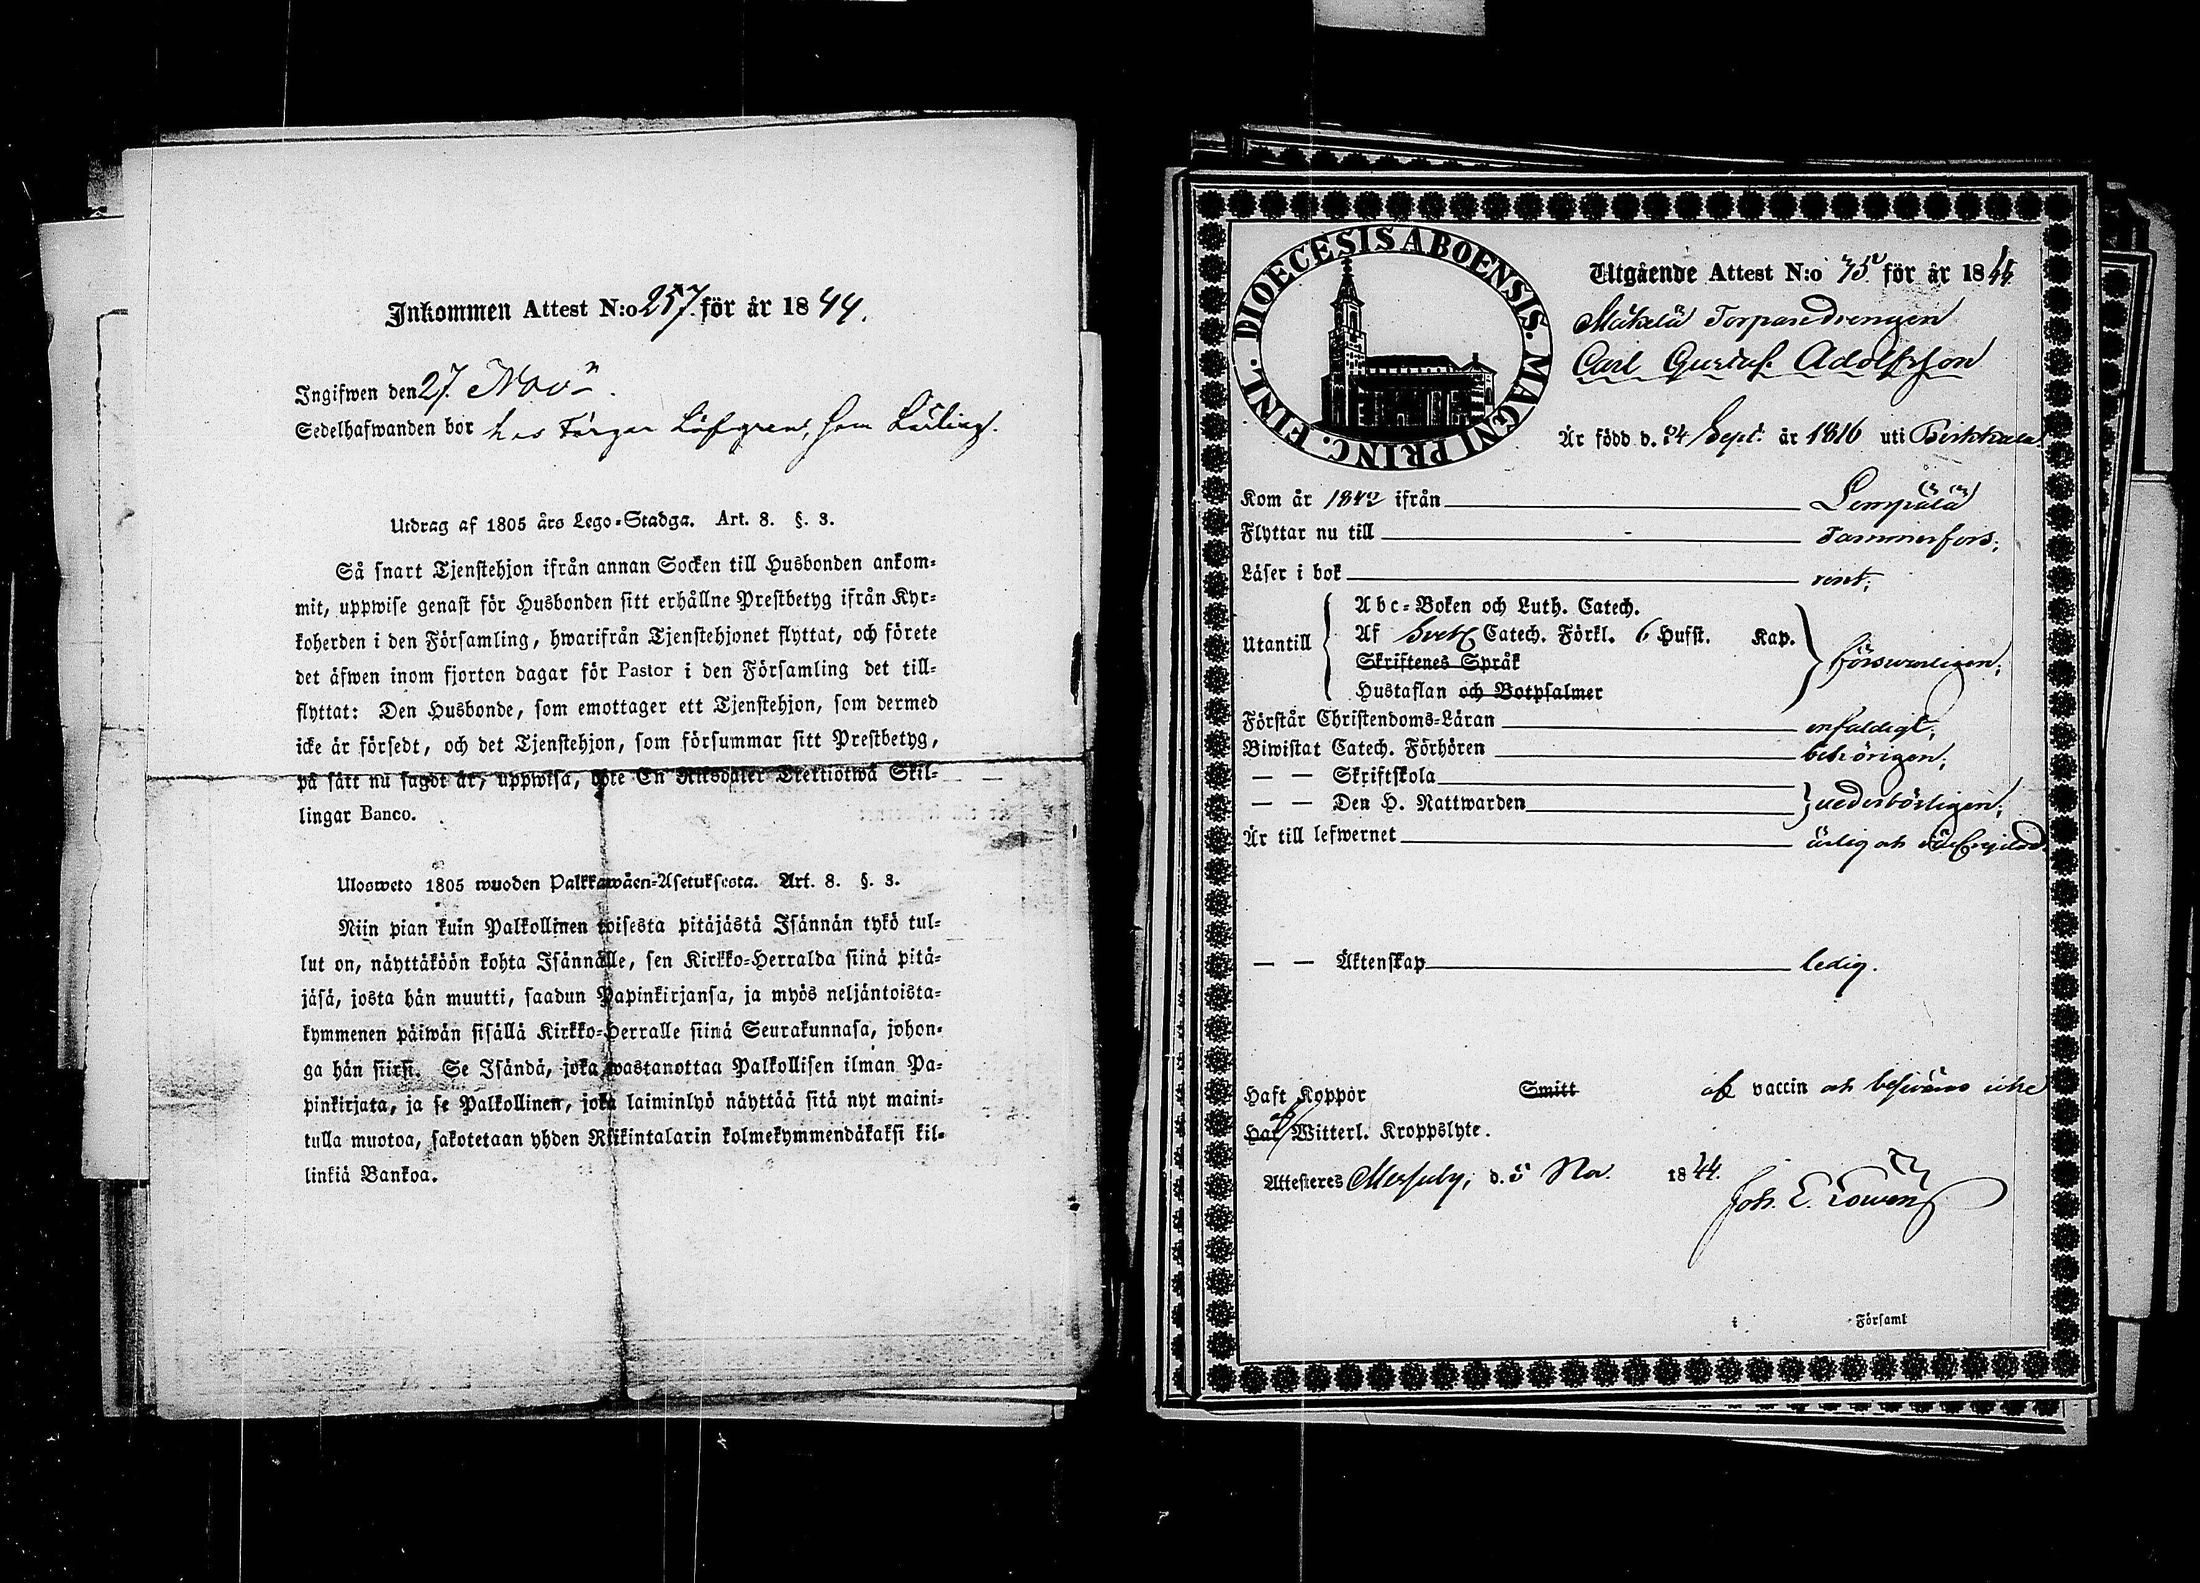 Inkommen Attest N:o 257. för år 1844.
Ingifwen den 27. Nov:
Sedelhafwanden bor hos Färgar Löfgren, som Lärling.
Utdrag af 1805 års Lego-Stadga. Art. 8. §. 3.
Så snart Tjenstehjon ifrån annan Socken till Husbonden ankom-
mit, uppwise genast för Husbonden sitt erhållne Prestbetyg ifrån Kyr-
koherden i den Församling, hwarifrån Tjenstehjonet flyttat, och förete
det äfwen inom fjorton dagar för Pastor i den Församling det till-
flyttat: Den Husbonde, som emottager ett Tjenstehjon, som dermed
icke är försedt, och det Tjenstehjon, som försummar sitt Prestbetyg,
på sätt nu sagdt är, uppwisa, böte En Riksdaler Trettiotwå Skil-
lingar Banco.
Ulosweto 1805 wuoden Palkkawäen-Asetuksesta. Art. 8. §. 3.
Niin pian kuin Palkollinen toisesta pitäjästä Isännän tykö tul-
lut on, näyttäköön kohta Isännälle, sen Kirkko-Herralda siinä pitä-
jäsä, josta hän muutti, saadun Papinkirjansa, ja myös neljäntoista-
kymmenen päiwän sisällä Kirkko-Herralle siinä Seurakunnasa, johon-
ga hän siirsi. Se Isändä, joka wastanottaa Palkollisen ilman Pa-
pinkirjata, ja se Palkollinen, joka laiminlyö näyttää sitä nyt maini-
tulla muotoa, sakotetaan yhden Riikintalarin kolmekymmendäkaksi kil-
linkiä Bankoa.
DIOECESIS ABOENSIS. MAGNI PRINC. FINL.
Utgående Attest N:o 75 för år 1844
Mäkelä Torparedrengen
Carl Gustaf Adolfsson
Är född d. 24 Sept. år 1816 uti Birkkala
Kom år 1842 ifrån Lempälä
Flyttar nu till Tammerfors;
Läser i bok rent;
Utantill
Abc-Boken och Luth. Catech.
Af Svet Catech. Förkl. 6 Hufst. Kap.
Skriftenes Språk
Hustaflan och Botpsalmer
försvarligen;
Förstår Christendoms-Läran enfaldigt;
Biwistat Catech. Förhören behörigen;
— — Skriftskola
— — Den H. Nattwarden vederbörligen;
Är till lefwernet ärlig och
— — Äktenskap ledig.
Haft Koppor Smitt af vaccin och besväras icke
Har af Witterl. Kroppslyte.
Attesteres Messuby, d. 5 Nov. 1844.
Joh. E. Lowen
i Församl